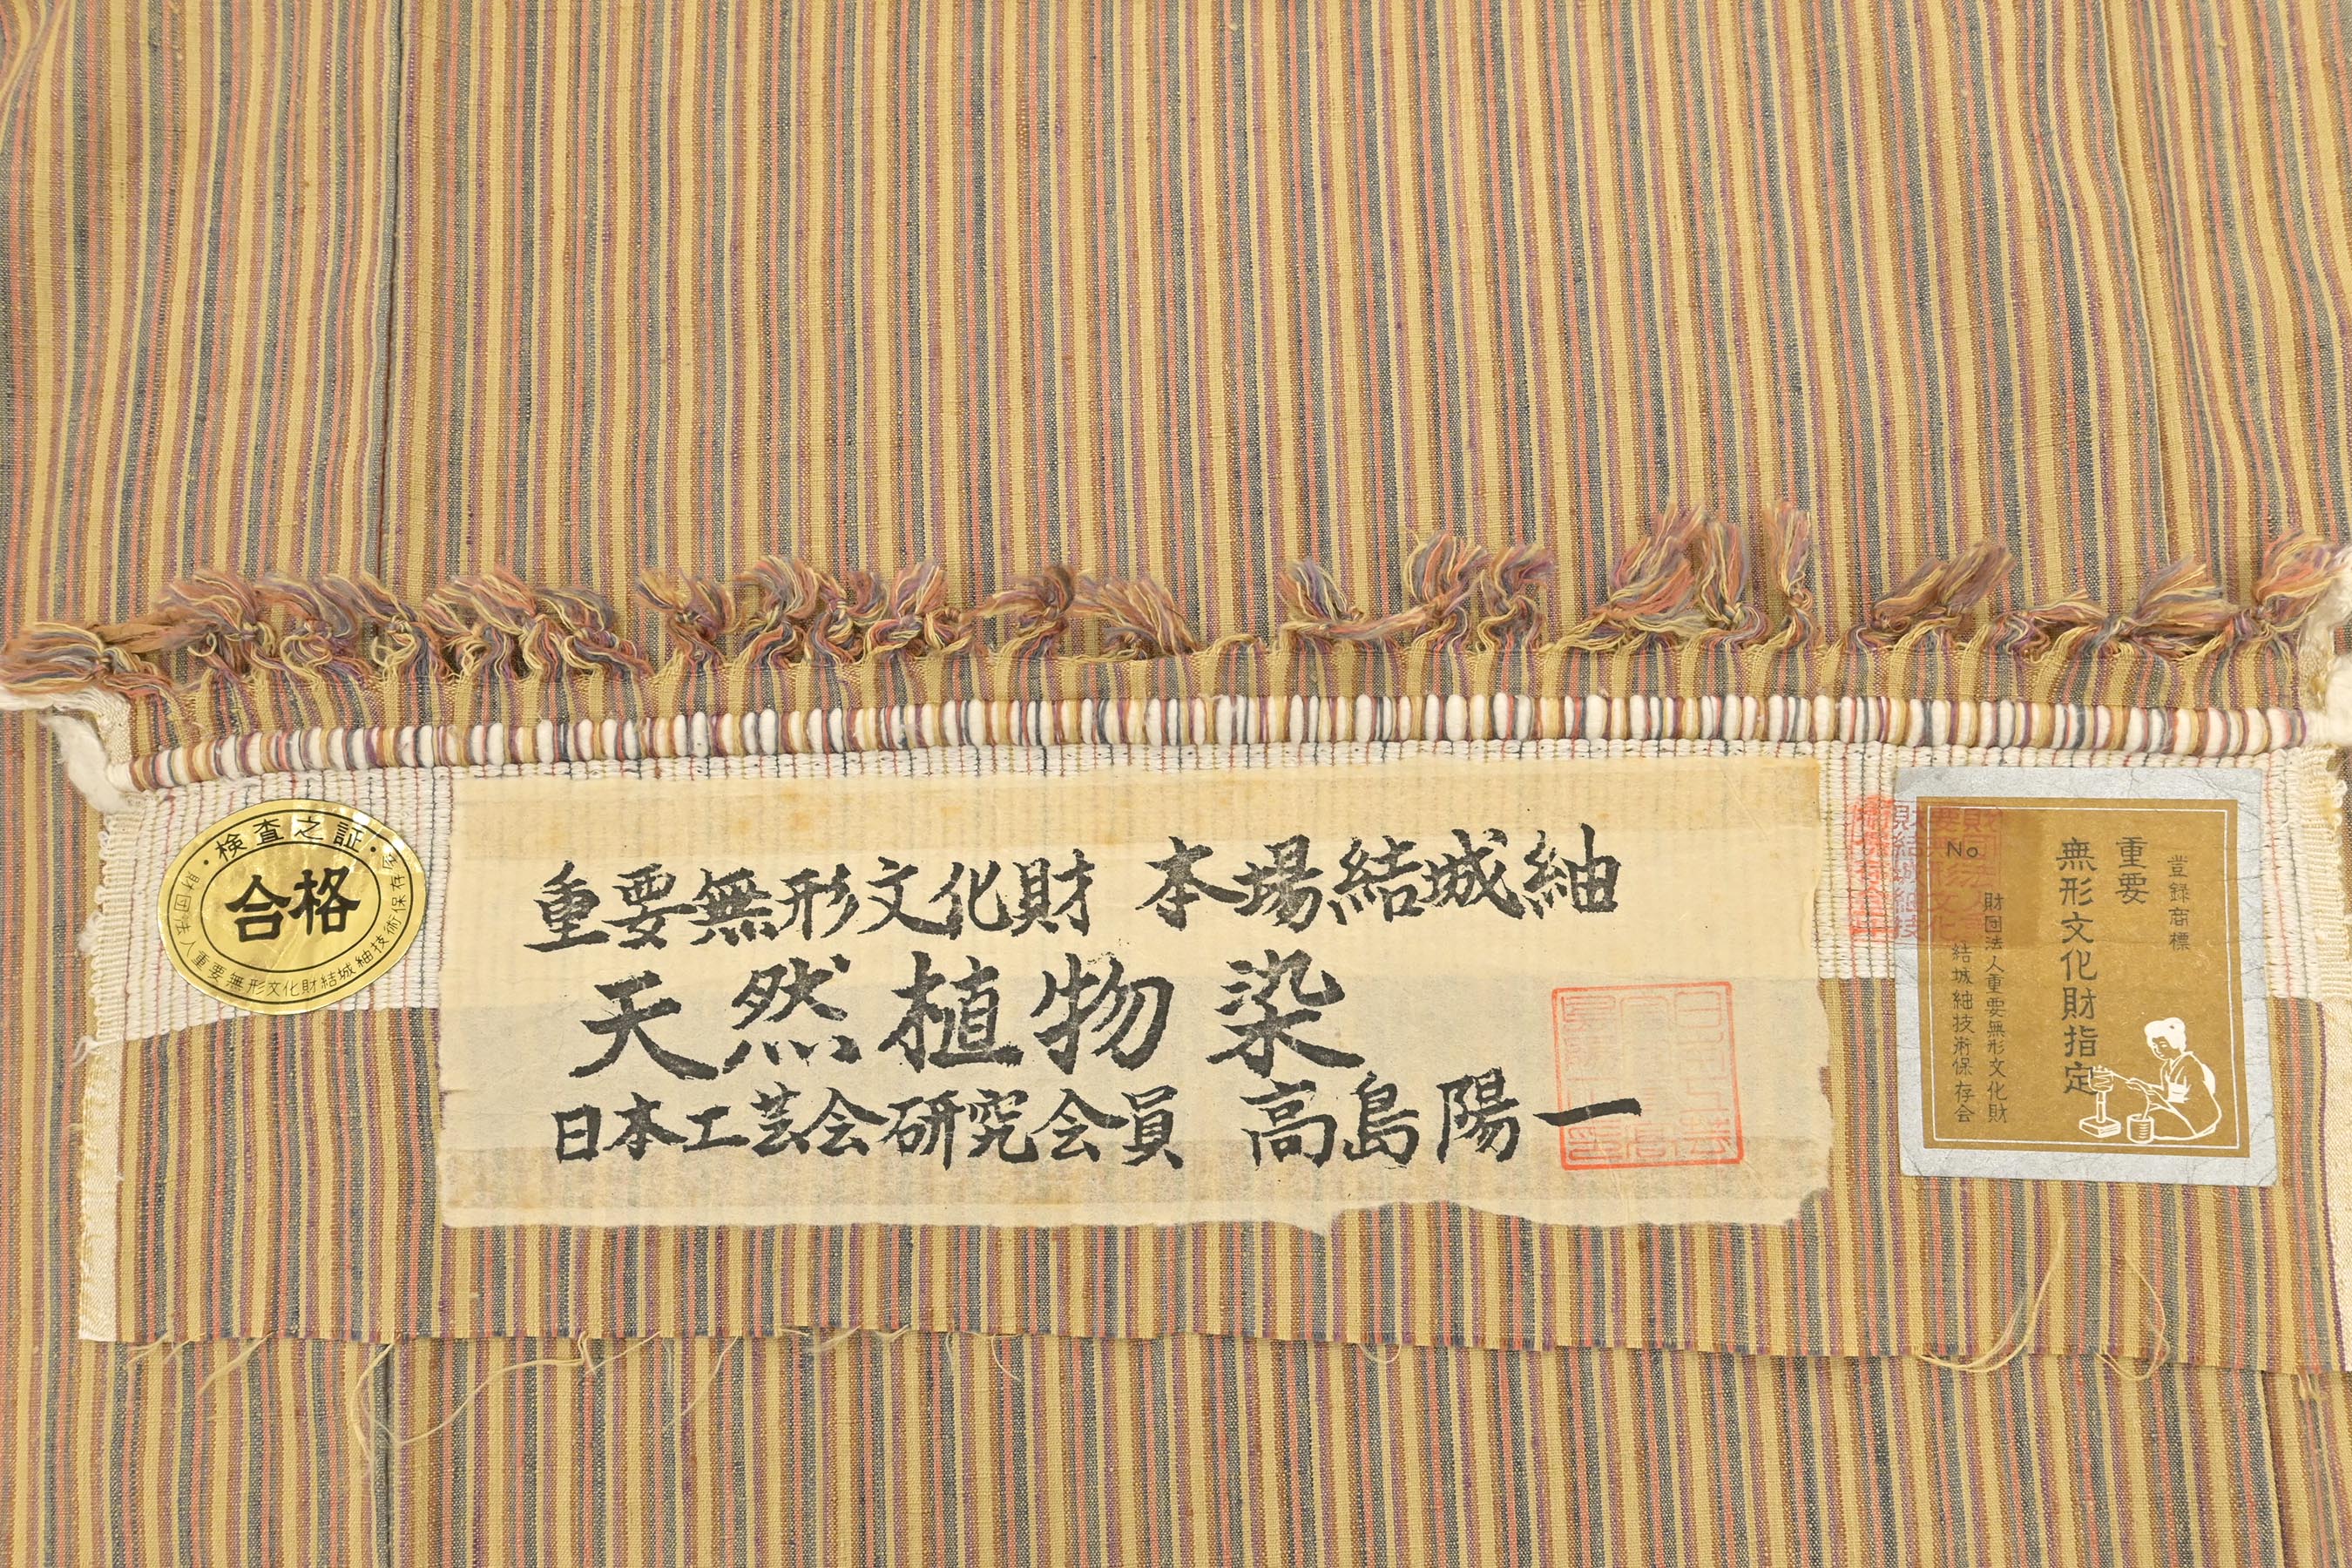 検査之証
合格
財団法人重要無形文化財結城紬技術保存会
重要無形文化財 本場結城紬
天然植物染
日本工芸会研究会員 高島陽一
登録商標
重要
無形文化財指定
財団法人重要無形文化財
結城紬技術保存会
No